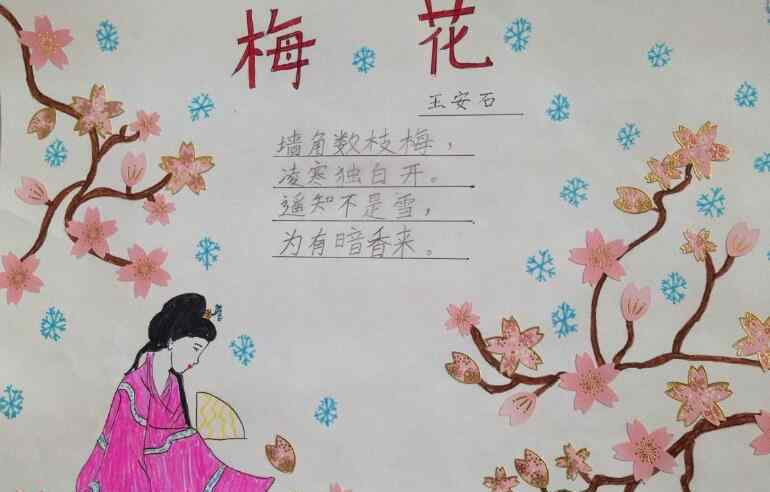 梅 花
王安石
墙角数枝梅，
凌寒独自开。
遥知不是雪，
为有暗香来。